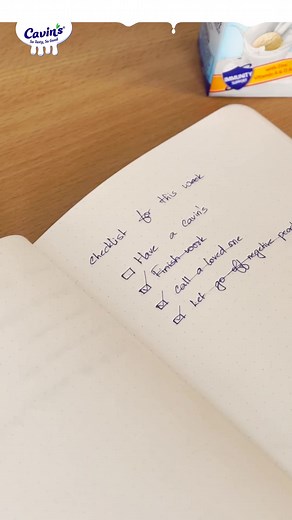 Cavin's
So Tasty, So Good!
IMMUNITY
checklist for this week
Have a Cavin's
Finish work
Call a loved one
Let go off negative